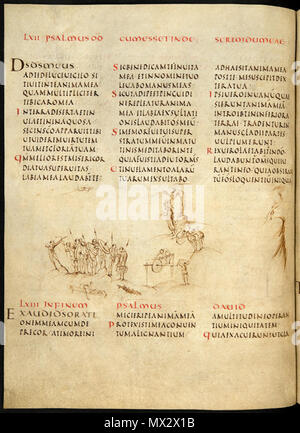 LXII PSALMUS DD CUM ESSET IN DE SERTO IDUMEAE
DSDSMEUS
ADTEDELUCEUIGILO SI
TIUITINTEANIMAMEA
QUAMMULTIPLICITER
TIBICAROMEA
INTERRADESERTAETIN
UIAETINAQUOSA
SICINSCOAPPARUITIBI
UTUIDEREMUIRTUTEM
TUAMETGLORIAMTUAM
QMMELIORESTMISERICOR
DIATUASUPERUITAS
LABIAMEALAUDABTE
SICBENEDICAMTEINUITA
MEAETINNOMINETUO
LEUABOMANUSMEAS
SICUTADIPEETPINGUEDI
NEREPLEATURANIMA
MEAETLABIAEXULTATIO
NISLAUDABOSMEUM
SIMEMORFUITUISUPER
STRATUMMEUMINMATU
TINISMEDITABORINTE
QUIAFUISTIADIUTORMS
ETINUELAMENTOALARU
TUARUMEXULTABO
ADHAESITANIMAMEA
POSTTE MESUSCEPITDEX
TERATUA
IPSIUEROINUANUMQUAE
SIERUNTANIMAMEA
INTROIBUNTININFERIORA
TERRAE TRADENTURIN
MANUSGLADIIPARTES
UULPIUMERUNT
REXUEROLAETABITINDO
LAUDABUNTOMSQUIIU
RANTINEO QUIAOBSTRUC
TUESTOSLOQUENTIUINIQUA
LXIII INFINEM PSALMUS DAUID
EXAUDIDSORATI
ONEMMEAMCUMDE
PRECOR ATIMOREINI
MICIERIPEANIMAMEA
PROTEXISTIMEACONUEN
TUMALIGNANTIUM
AMULTITUDINEOPERAN
TIUMINIQUITATEM
QUIAEXACUERUNT
alamy
MX2X1B